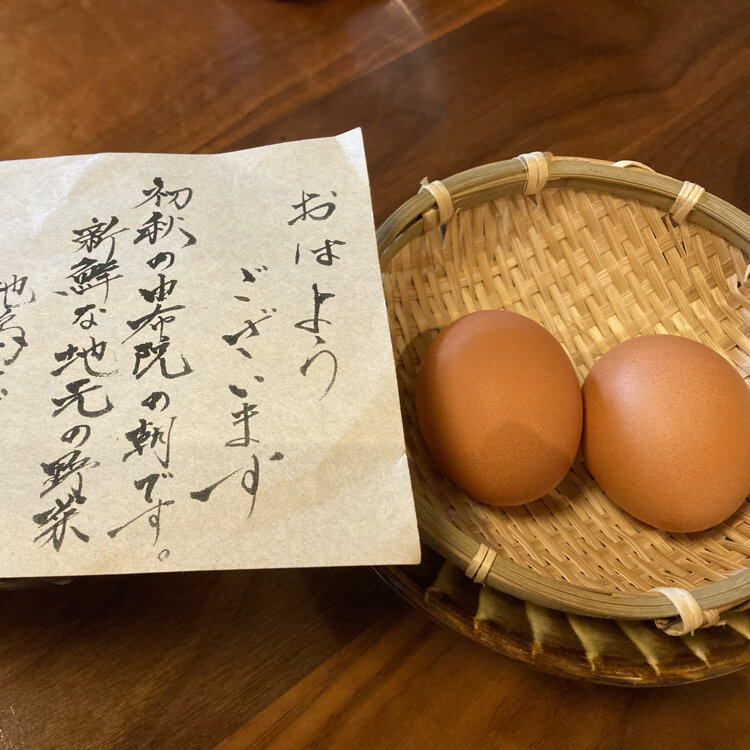 おはよう
ございます
初秋の由布院の朝です。
新鮮な地元の野菜
地